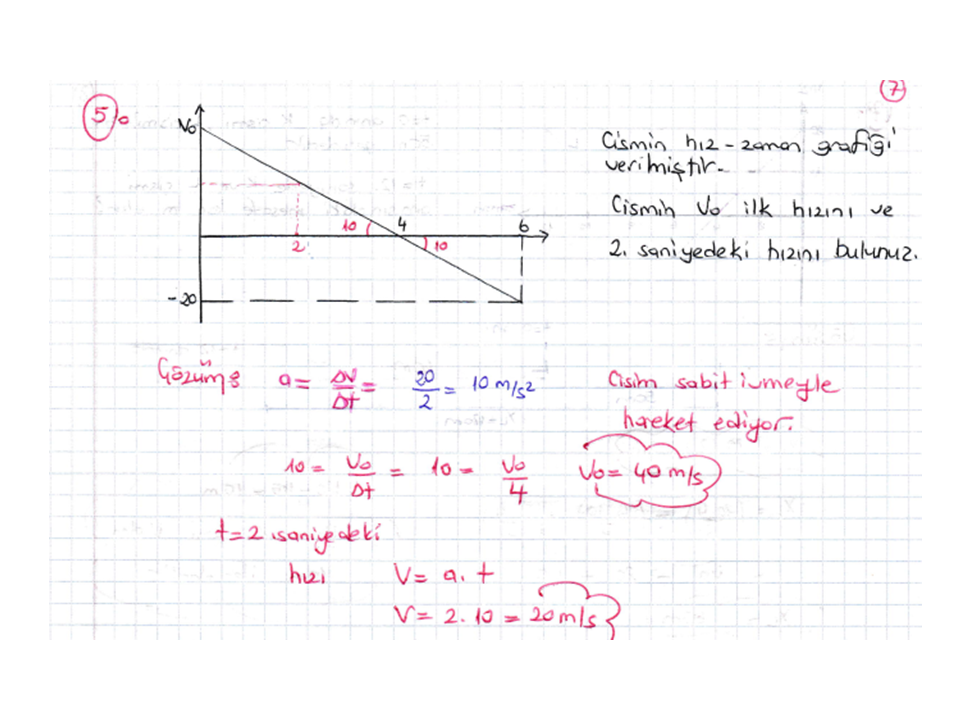 7
5)o
Vo
10 4 6
2 10
-20
Cismin hız-zaman grafiği
verilmiştir.
Cismin Vo ilk hızını ve
2. saniyedeki hızını bulunuz.
Çözüm: a = ΔV/Δt = 20/2 = 10 m/s²
Cisim sabit ivmeyle
hareket ediyor.
10 = Vo/Δt = 10 = Vo/4 Vo = 40 m/s
t=2 saniyedeki
hızı V = a. t
V = 2. 10 = 20 m/s